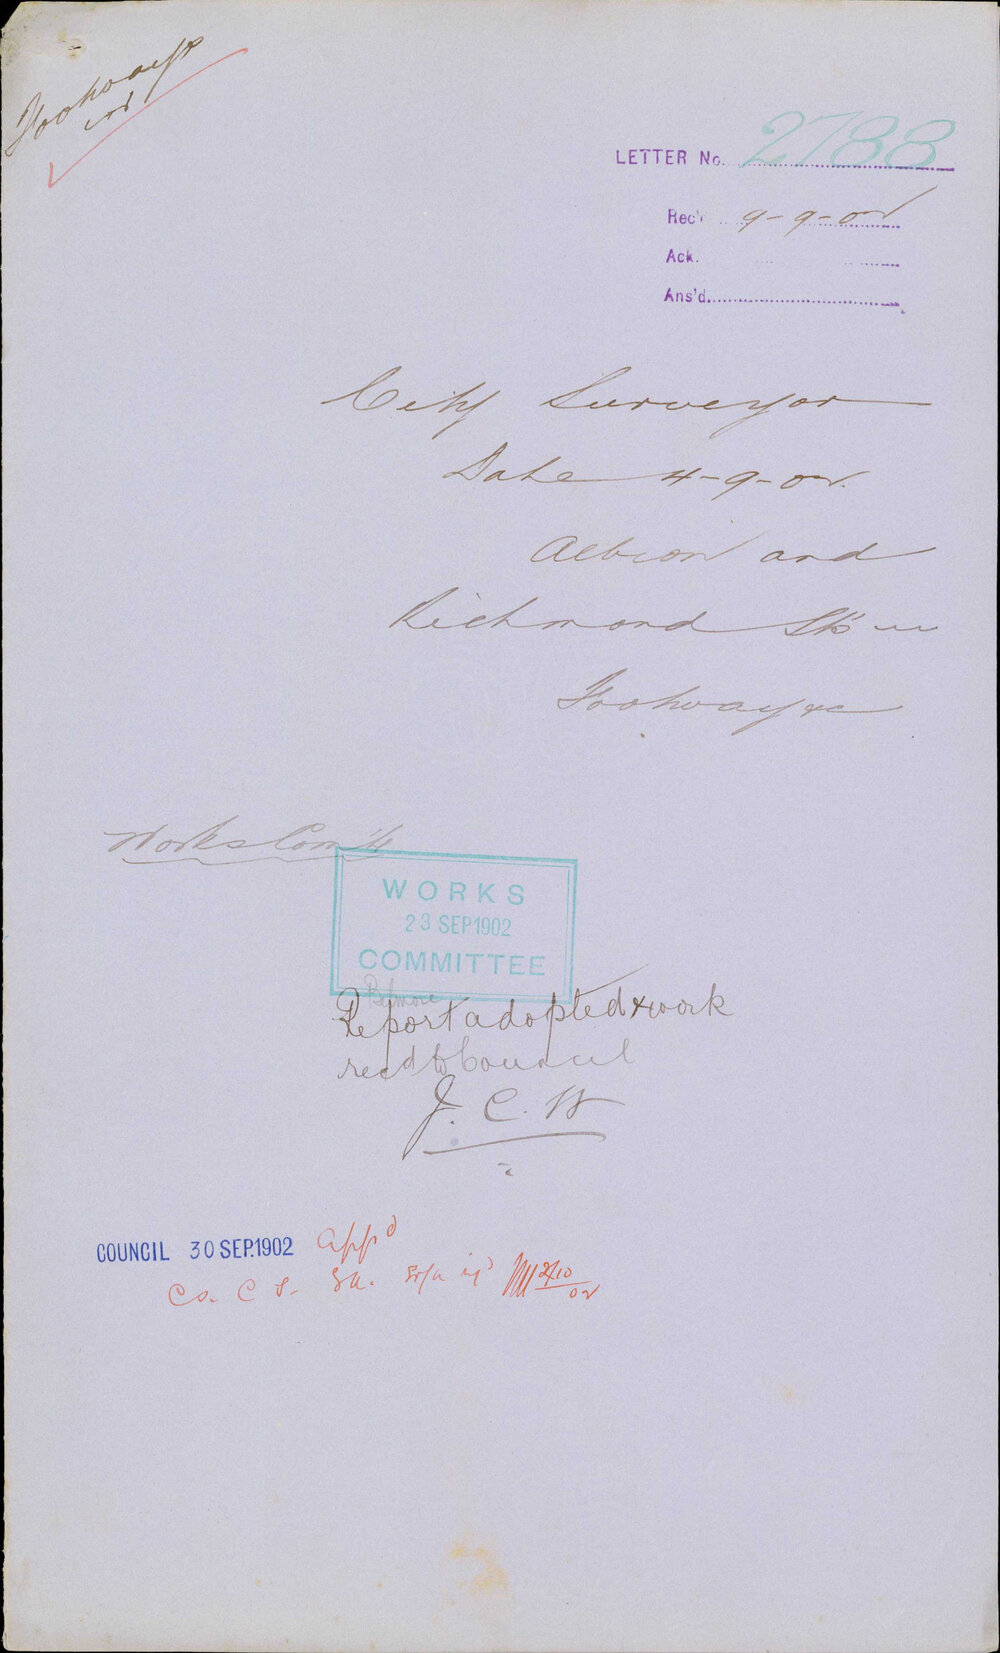 Footways
LETTER No. 2788
Rec'd 9-9-02
Ack.
Ans'd.
City Surveyor
Date 4-9-02.
Albion and
Richmond Sts
Footway &c
Works Com'ee
WORKS
23 SEP 1902
COMMITTEE
Belmore
Report adopted & work
recd to Council
J. C. W
COUNCIL 30 SEP. 1902 app'd
Co. C S.
2/10
02